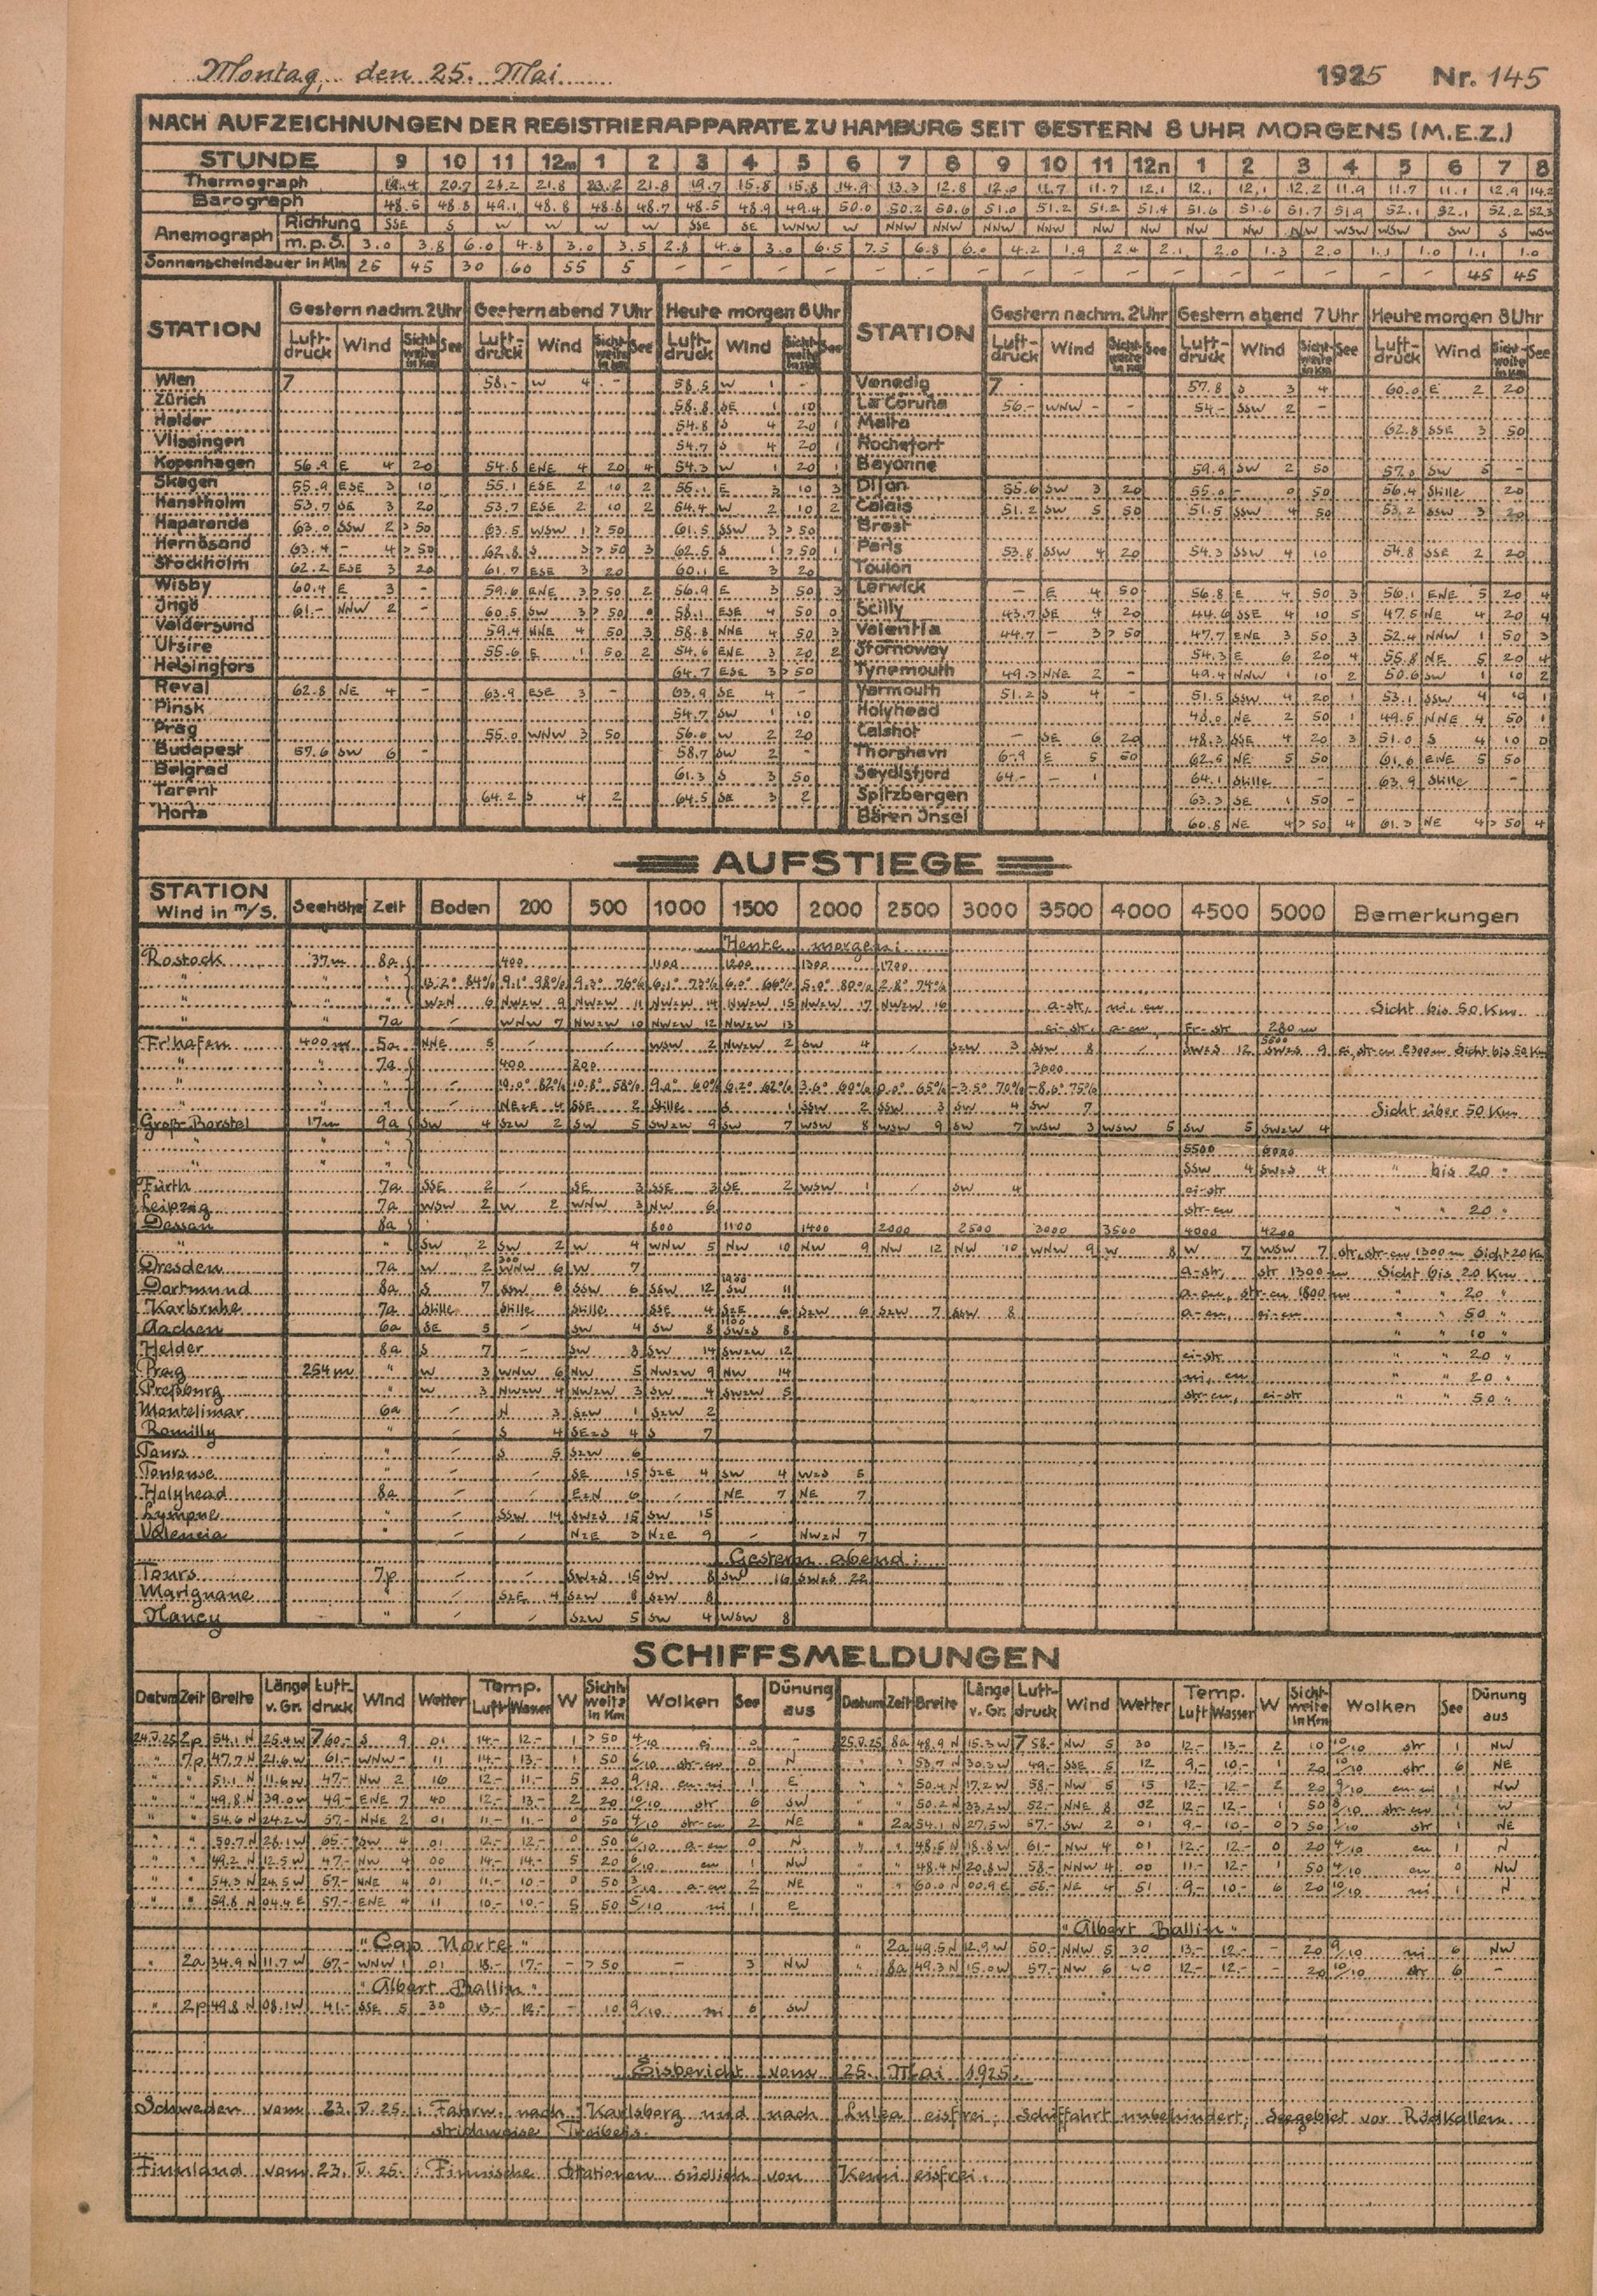 Montag, den 25. Mai 1925 Nr. 145
NACH AUFZEICHNUNGEN DER REGISTRIERAPPARATE ZU HAMBURG SEIT GESTERN 8 UHR MORGENS (M.E.Z.)
STUNDE 9 10 11 12m 1 2 3 4 5 6 7 8 9 10 11 12n 1 2 3 4 5 6 7 8
Thermograph 20.7 21.8 21.8 19.7 15.8 15.8 14.9 13.3 12.8 11.7 11.7 12.1 12.1 12.1 12.2 11.9 11.7 11.1 12.9 14.2
Barograph 48.5 48.8 49.1 48.8 48.8 48.7 48.5 48.9 49.4 50.0 50.2 50.6 51.0 51.2 51.2 51.4 51.6 51.6 51.7 51.9 52.1 52.1 52.2
Anemograph Richtung SSE S W W W W SSE SE WNW W NNW NNW NNW NNW NW NW NW NW NW WSW WSW SW S WSW
m.p.S. 3.0 3.8 6.0 4.8 3.0 3.5 2.8 4.6 3.0 6.5 7.5 6.8 6.0 4.2 1.9 2.4 2.1 2.0 1.3 2.0 1.1 1.0 1.1 1.0
Sonnenscheindauer in Min 25 45 30 60 55 5 – – – – – – – – – – – – – – – – 45 45
STATION Gestern nachm. 2 Uhr Gestern abend 7 Uhr Heute morgen 8 Uhr STATION Gestern nachm. 2 Uhr Gestern abend 7 Uhr Heute morgen 8 Uhr
Luftdruck Wind Sichtweite in Km See Luftdruck Wind Sichtweite in Km See Luftdruck Wind Sichtweite in Km See Luftdruck Wind Sichtweite in Km See Luftdruck Wind Sichtweite in Km See Luftdruck Wind Sichtweite in Km See
Wien 7 58.- W 4 - 58.5 W 1 - Venedig 7 57.8 S 3 4 60.0 E 2 20
Zürich 58.8 SE 1 10 La Coruña 56.- WNW - - 54.- SSW 2 -
Helder 54.8 S 4 20 1 Malta 62.8 SSE 3 50
Vlissingen 54.7 S 4 20 1 Rochefort
Kopenhagen 56.9 E 4 20 54.8 ENE 4 20 4 54.3 W 1 20 1 Bayonne 59.9 SW 2 50 57.0 SW 5 -
Skagen 55.9 ESE 3 10 55.1 ESE 2 10 2 55.1 E 3 10 3 Dijon 55.6 SW 3 20 55.0 - 0 50 56.4 Stille 20
Hanstholm 53.7 SE 3 20 53.7 ESE 2 10 2 54.4 W 2 10 2 Calais 51.2 SW 5 50 51.5 SSW 4 50 53.2 SSW 3 20
Haparanda 63.0 SSW 2 >50 63.5 WSW 1 >50 61.5 SSW 3 >50 Brest
Hernösand 63.4 - 4 >50 62.8 S 3 >50 3 62.5 S 1 >50 1 Paris 53.8 SSW 4 20 54.3 SSW 4 10 54.8 SSE 2 20
Stockholm 62.2 ESE 3 20 61.7 ESE 3 20 60.1 E 3 20 Toulon
Wisby 60.4 E 3 - 59.6 ENE 3 >50 2 56.9 E 3 50 3 Lerwick - E 4 50 56.8 E 4 50 3 56.1 ENE 5 20 4
Ingö 61.- NNW 2 - 60.5 SW 3 >50 58.1 ESE 4 50 0 Scilly 43.7 SE 4 20 44.6 SSE 4 10 5 47.5 NE 4 20 4
Valdersund 59.4 NNE 4 50 3 58.8 NNE 4 50 3 Valentia 44.7 - 3 >50 47.7 ENE 3 50 3 52.4 NNW 1 50 3
Utsire 55.6 E 1 50 2 54.6 ENE 3 20 2 Stornoway 54.3 E 6 20 4 55.8 NE 5 20 4
Helsingfors 64.7 ESE 3 >50 Tynemouth 49.3 NNE 2 - 49.4 NNW 1 10 2 50.6 SW 1 10 2
Reval 62.8 NE 4 - 63.9 ESE 3 - 63.9 SE 4 - Yarmouth 51.2 S 4 - 51.5 SSW 4 20 1 53.1 SSW 4 10 1
Pinsk 54.7 SW 1 10 Holyhead 48.0 NE 2 50 1 49.5 NNE 4 50 1
Prag 55.0 WNW 3 50 56.6 W 2 20 Calshot - SE 6 20 48.3 SSE 4 20 3 51.0 S 4 10 0
Budapest 57.6 SW 6 - 58.7 SW 2 - Thorshavn E 5 50 62.5 NE 5 50 61.6 ENE 5 50
Belgrad 61.3 S 3 50 Seydisfjord 64.- - 1 64.1 Stille - 63.9 Stille -
Tarent 64.2 S 4 2 64.5 SE 3 2 Spitzbergen 63.3 SE 1 50 -
Horta Bären Insel 60.8 NE 4 >50 4 61.3 NE 4 >50 4
AUFSTIEGE
STATION Wind in m/S. Seehöhe Zeit Boden 200 500 1000 1500 2000 2500 3000 3500 4000 4500 5000 Bemerkungen
Heute morgen:
Rostock 37m 8a 400 1100 1200 1300 1700
" " " 13.2° 84% 9.1° 98% 9.3° 76% 6.1° 73% 6.0° 66% 5.0° 80% 2.8° 74%
" " " WzN 6 NWzW 9 NWzW 11 NWzW 14 NWzW 15 NWzW 17 NWzW 16 a-str, ni, cu Sicht bis 50 Km
" 7a - WNW 7 NWzW 10 NWzW 12 NWzW 13 ci-str, a-cu, fr-str 280 m
Fr!hafen 400m 5a NNE 5 - - WSW 2 NWzW 2 SW 4 - SzW 3 SSW 8 - SWzS 12 5500 SWzS 9 ci, str-cu 2300m Sicht bis 50 Km
" 7a 400 200 3600
" " " - 10.0° 82% 10.8° 58% 9.0° 60% 6.2° 62% 3.6° 60% 0.0° 65% -3.5° 70% -8.6° 75%
" " " - NEzE 4 SSE 2 Stille S 1 SSW 2 SSW 3 SW 4 SW 7 Sicht über 50 Km
Groß-Borstel 17m 9a SW 4 SzW 2 SW 5 SWzW 9 SW 7 WSW 8 WSW 9 SW 7 WSW 3 WSW 5 SW 5 SWzW 4
5500 6000
" " " SSW 4 SWzS 4 " bis 20 "
Fürth 7a SSE 2 - SE 3 SSE 3 SE 2 WSW 1 - SW 4 ci-str
Leipzig 7a WSW 2 W 2 WNW 3 NW 6 str-cu " " 20 "
Dessau 8a 600 1100 1400 2000 2500 3000 3500 4000 4200
" " SW 2 SW 2 W 4 WNW 5 NW 10 NW 9 NW 12 NW 10 WNW 9 W 8 W 7 WSW 7 str, str-cu 1300m Sicht 20 Km
Dresden 7a W 2 300 WNW 6 W 7 a-str, str 1300m Sicht bis 20 Km
Dortmund 8a S 7 SSW 6 SSW 6 SSW 12 SW 11 a-cu, str-cu 1800m " " 20 "
Karlsruhe 7a Stille Stille Stille SSE 4 SzE 6 SzW 6 SzW 7 SSW 8 a-cu, ci-cu " " 50 "
Aachen 6a SE 5 - SW 4 SW 8 1100 SWzS 8 " " 10 "
Helder 8a S 7 - SW 8 SW 14 SWzW 12 ci-str " " 20 "
Prag 254m " W 3 WNW 6 NW 5 NWzW 9 NW 14 ni, cu " " 20 "
Preßburg " W 3 NWzW 4 NWzW 3 SW 4 SWzW 5 str-cu, ci-str " " 50 "
Montelimar 6a - N 3 SzW 1 SzW 2
Romilly " - S 4 SEzS 4 S 7
Tours " - S 5 SzW 6
Toulouse " - - SE 15 SzE 4 SW 4 WzS 5
Holyhead 8a - - EzN 6 - NE 7 NE 7
Lympne " - SSW 14 SWzS 15 SW 15
Valencia " - - NzE 3 NzE 9 - NWzN 7
Gestern abend:
Tours 7p - - SWzS 15 SW 8 SW 16 SWzS 22
Marignane " - SzE 4 SzW 8 SzW 8
Nancy " - - SzW 5 SW 4 WSW 8
SCHIFFSMELDUNGEN
Datum Zeit Breite Länge v. Gr. Luftdruck Wind Wetter Temp. Luft Wasser W Sichtweite in Km Wolken See Dünung aus Datum Zeit Breite Länge v. Gr. Luftdruck Wind Wetter Temp. Luft Wasser W Sichtweite in Km Wolken See Dünung aus
24.V.25 2p 54.1 N 25.4 W 760.- S 9 01 14.- 12.- 1 >50 4/10 ci 0 - 25.V.25 8a 48.9 N 15.3 W 758.- NW 5 30 12.- 13.- 2 10 10/10 str 1 NW
" 7p 47.7 N 21.6 W 61.- WNW - 11 14.- 13.- 1 50 6/10 str-cu 0 N " " 53.7 N 30.3 W 49.- SSE 5 12 9.- 10.- 1 20 10/10 str 6 NE
" " 51.1 N 11.6 W 47.- NW 2 16 12.- 11.- 5 20 9/10 cu-ni 1 E " " 50.4 N 17.2 W 58.- NW 5 15 12.- 12.- 2 20 9/10 cu-ni 1 NW
" " 49.8 N 39.0 W 49.- ENE 7 40 12.- 13.- 2 20 10/10 str 6 SW " " 50.2 N 33.2 W 52.- NNE 8 02 12.- 12.- 1 50 str-cu 1 W
" " 54.6 N 24.2 W 57.- NNE 2 01 11.- 11.- 0 50 4/10 str-cu 2 NE " 2a 54.1 N 27.5 W 57.- SW 2 01 9.- 10.- 0 >50 str 1 NE
" " 50.7 N 28.1 W 65.- SW 4 01 12.- 12.- 0 50 6/10 a-cu 0 N " " 48.5 N 18.8 W 61.- NW 4 01 12.- 12.- 0 20 4/10 cu 1 N
" " 49.2 N 12.5 W 47.- NW 4 00 14.- 14.- 5 20 6/10 cu 1 NW " " 48.4 N 20.8 W 58.- NNW 4 00 11.- 12.- 1 50 4/10 cu 0 NW
" " 54.3 N 24.5 W 57.- NNE 4 01 11.- 10.- 0 50 3/10 a-cu 2 NE " " 60.0 N 00.9 E 56.- NE 4 51 9.- 10.- 6 20 10/10 ni 1 N
" " 59.8 N 04.4 E 57.- ENE 4 11 10.- 10.- 5 50 5/10 ni 1 E
"Albert Ballin"
"Cap Norte" " 2a 49.5 N 12.9 W 50.- NNW 5 30 13.- 12.- - 20 9/10 ni 6 NW
" 2a 34.9 N 11.7 W 67.- WNW 1 01 18.- 17.- - >50 - 3 NW " 8a 49.3 N 15.0 W 57.- NW 6 40 12.- 12.- - 20 10/10 str 6 -
"Albert Ballin"
" 2p 49.8 N 08.1 W 41.- SSE 5 30 13.- 12.- - 10 9/10 ni 6 SW
Eisbericht vom 25. Mai 1925.
Schweden vom 23. V. 25.: Fahrw. nach Karlsborg und nach Lulea eisfrei; Schiffahrt unbehindert; Seegebiet vor Rödkallen
strichweise Treibeis.
Finnland vom 23. V. 25.: Finnische Stationen südlich von Kemi eisfrei.